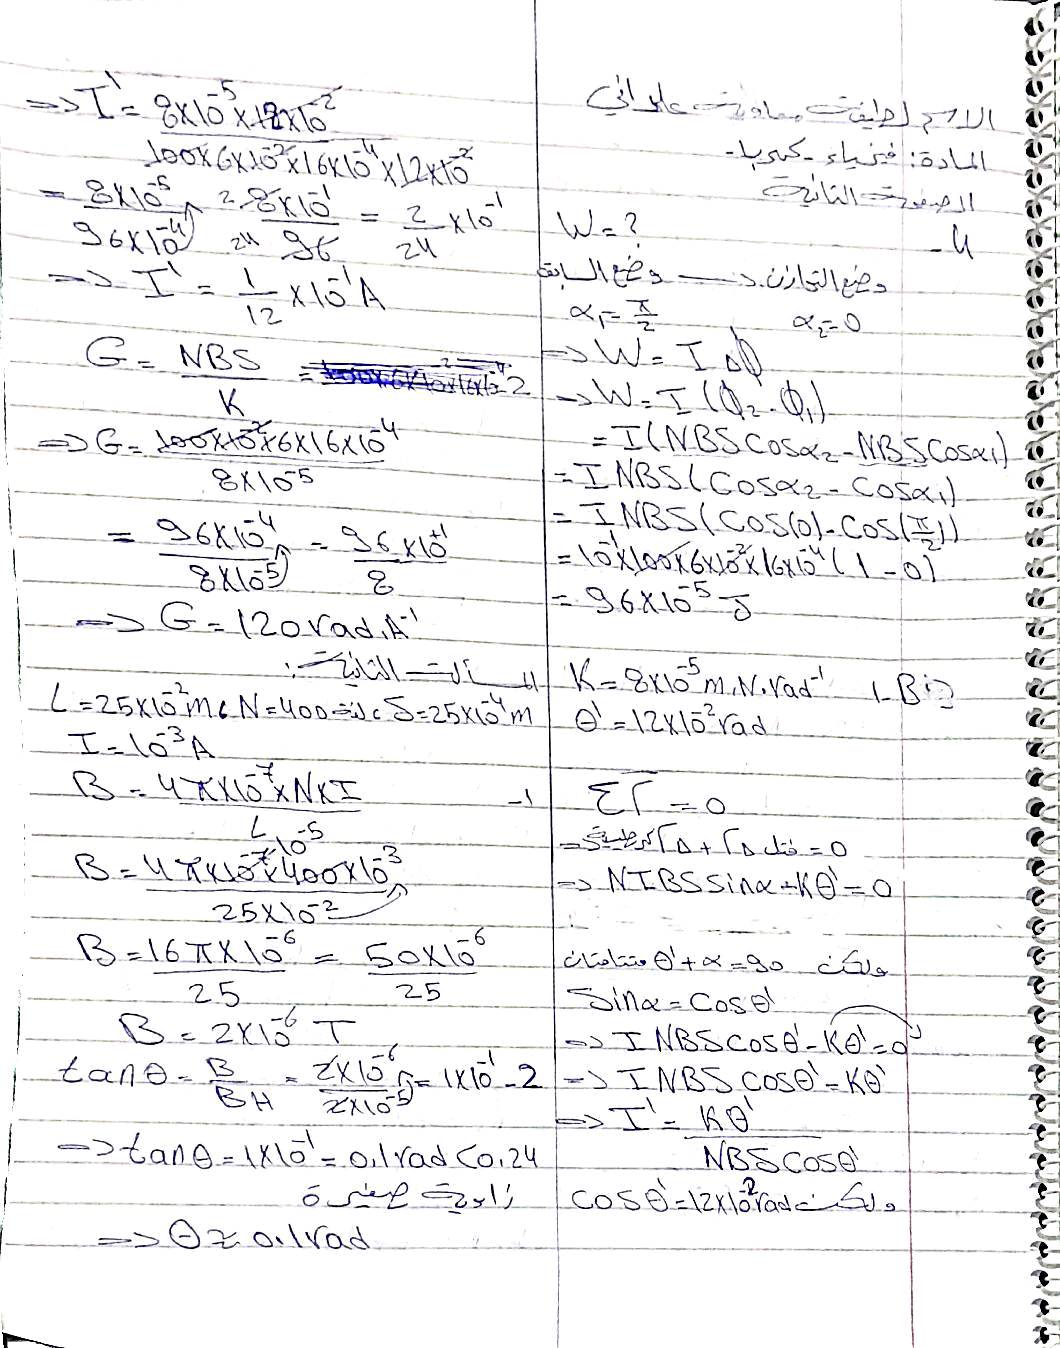 الاسم لطيفة معاوية علواني
المادة: فيزياء - كهربا -
الصفحة الثانية
4-
W = ?
وضع التوازن ← وضع السابق
α₁ = π/2 α₂ = 0
=> W = I Δφ
=> W = I (φ₂ - φ₁)
= I (NBS cosα₂ - NBS cosα₁)
= I NBS (cosα₂ - cosα₁)
= I NBS (cos(0) - cos(π/2))
= 10⁻¹ × 100 × 6 × 10⁻² × 16 × 10⁻⁴ (1 - 0)
= 96 × 10⁻⁵ J
K = 8 × 10⁻⁵ m.N.rad⁻¹ 1- B
θ' = 12 × 10⁻² rad
ΣΓ = 0
=> كهرطيسية ΓΔ + ΓΔ فتل = 0
=> NIBS sinα - Kθ' = 0
ولكن θ' + α = 90 متتامتان
sinα = cosθ'
=> I NBS cosθ' - Kθ' = 0
=> I NBS cosθ' = Kθ'
=> I' = Kθ' / NBS cosθ'
ولكن cosθ' = 12 × 10⁻² rad
=> I' = 8 × 10⁻⁵ × 12 × 10⁻² / 100 × 6 × 10⁻² × 16 × 10⁻⁴ × 12 × 10⁻²
= 8 × 10⁻⁵ / 96 × 10⁻⁴ = 8 × 10⁻¹ / 96 = 2/24 × 10⁻¹
=> I' = 1/12 × 10⁻¹ A
G = NBS / K = 2-
=> G = 100 × 10⁻² × 6 × 16 × 10⁻⁴ / 8 × 10⁻⁵
= 96 × 10⁻⁴ / 8 × 10⁻⁵ = 96 × 10⁺¹ / 8
=> G = 120 rad.A⁻¹
المسألة الثانية:
L = 25 × 10⁻² m، N = 400 لفة، S = 25 × 10⁻⁴ m
I = 10⁻³ A
B = 4π × 10⁻⁷ × N × I / L 1-
B = 4π × 10⁻⁷ × 400 × 10⁻³ / 25 × 10⁻²
B = 16π × 10⁻⁶ / 25 = 50 × 10⁻⁶ / 25
B = 2 × 10⁻⁶ T
tanθ = B / BH = 2 × 10⁻⁶ / 2 × 10⁻⁵ = 1 × 10⁻¹ -2
=> tanθ = 1 × 10⁻¹ = 0,1 rad < 0,24
زاوية صغيرة
=> θ ≈ 0,1 rad